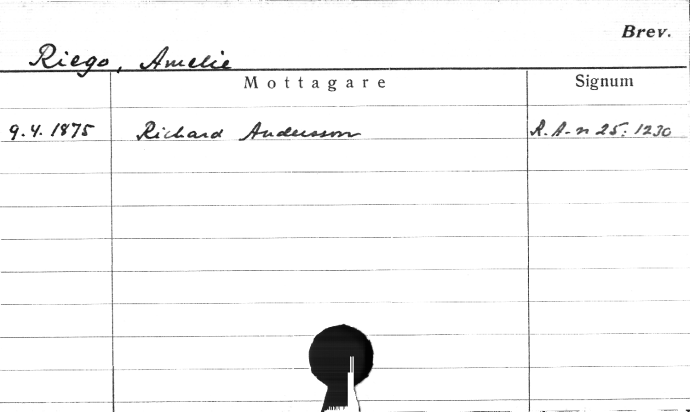 Brev.
Riego, Amelie
Mottagare Signum
9.4. 1875 Richard Andersson R. A-n 25: 1230